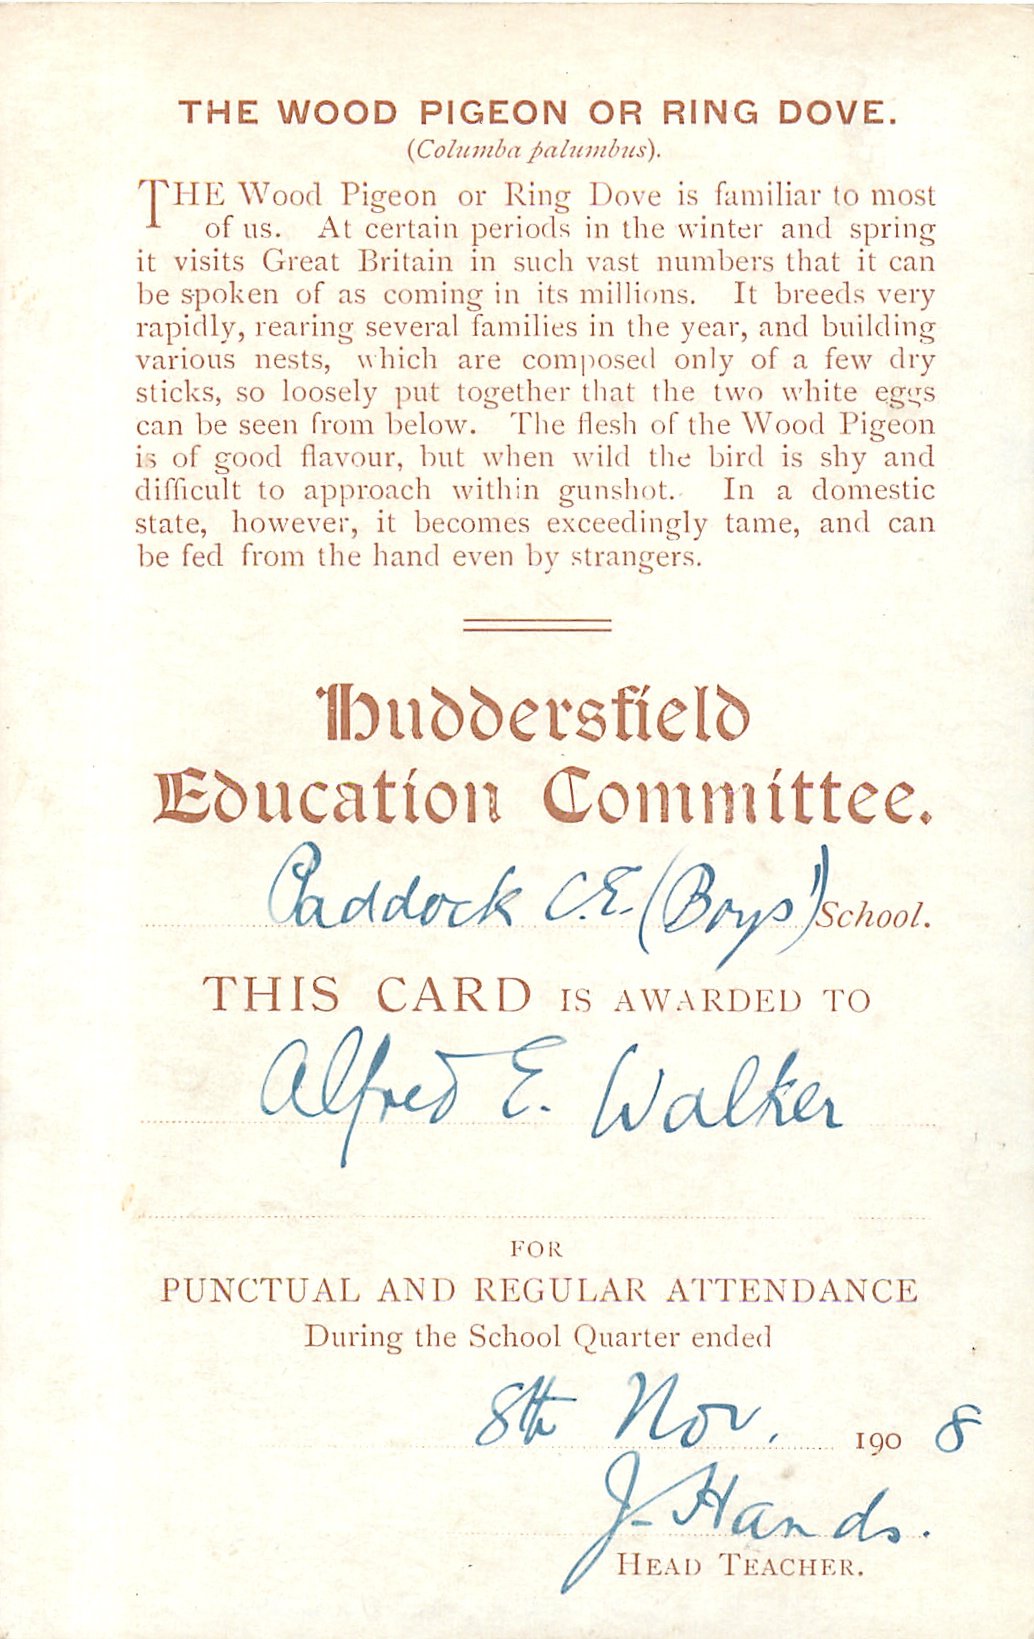 THE WOOD PIGEON OR RING DOVE.
(Columba palumbus).
THE Wood Pigeon or Ring Dove is familiar to most
of us. At certain periods in the winter and spring
it visits Great Britain in such vast numbers that it can
be spoken of as coming in its millions. It breeds very
rapidly, rearing several families in the year, and building
various nests, which are composed only of a few dry
sticks, so loosely put together that the two white eggs
can be seen from below. The flesh of the Wood Pigeon
is of good flavour, but when wild the bird is shy and
difficult to approach within gunshot. In a domestic
state, however, it becomes exceedingly tame, and can
be fed from the hand even by strangers.
Huddersfield
Education Committee.
Paddock C.E. (Boys') School.
THIS CARD IS AWARDED TO
Alfred E. Walker
FOR
PUNCTUAL AND REGULAR ATTENDANCE
During the School Quarter ended
8th Nov. 1908
J. Hands.
HEAD TEACHER.